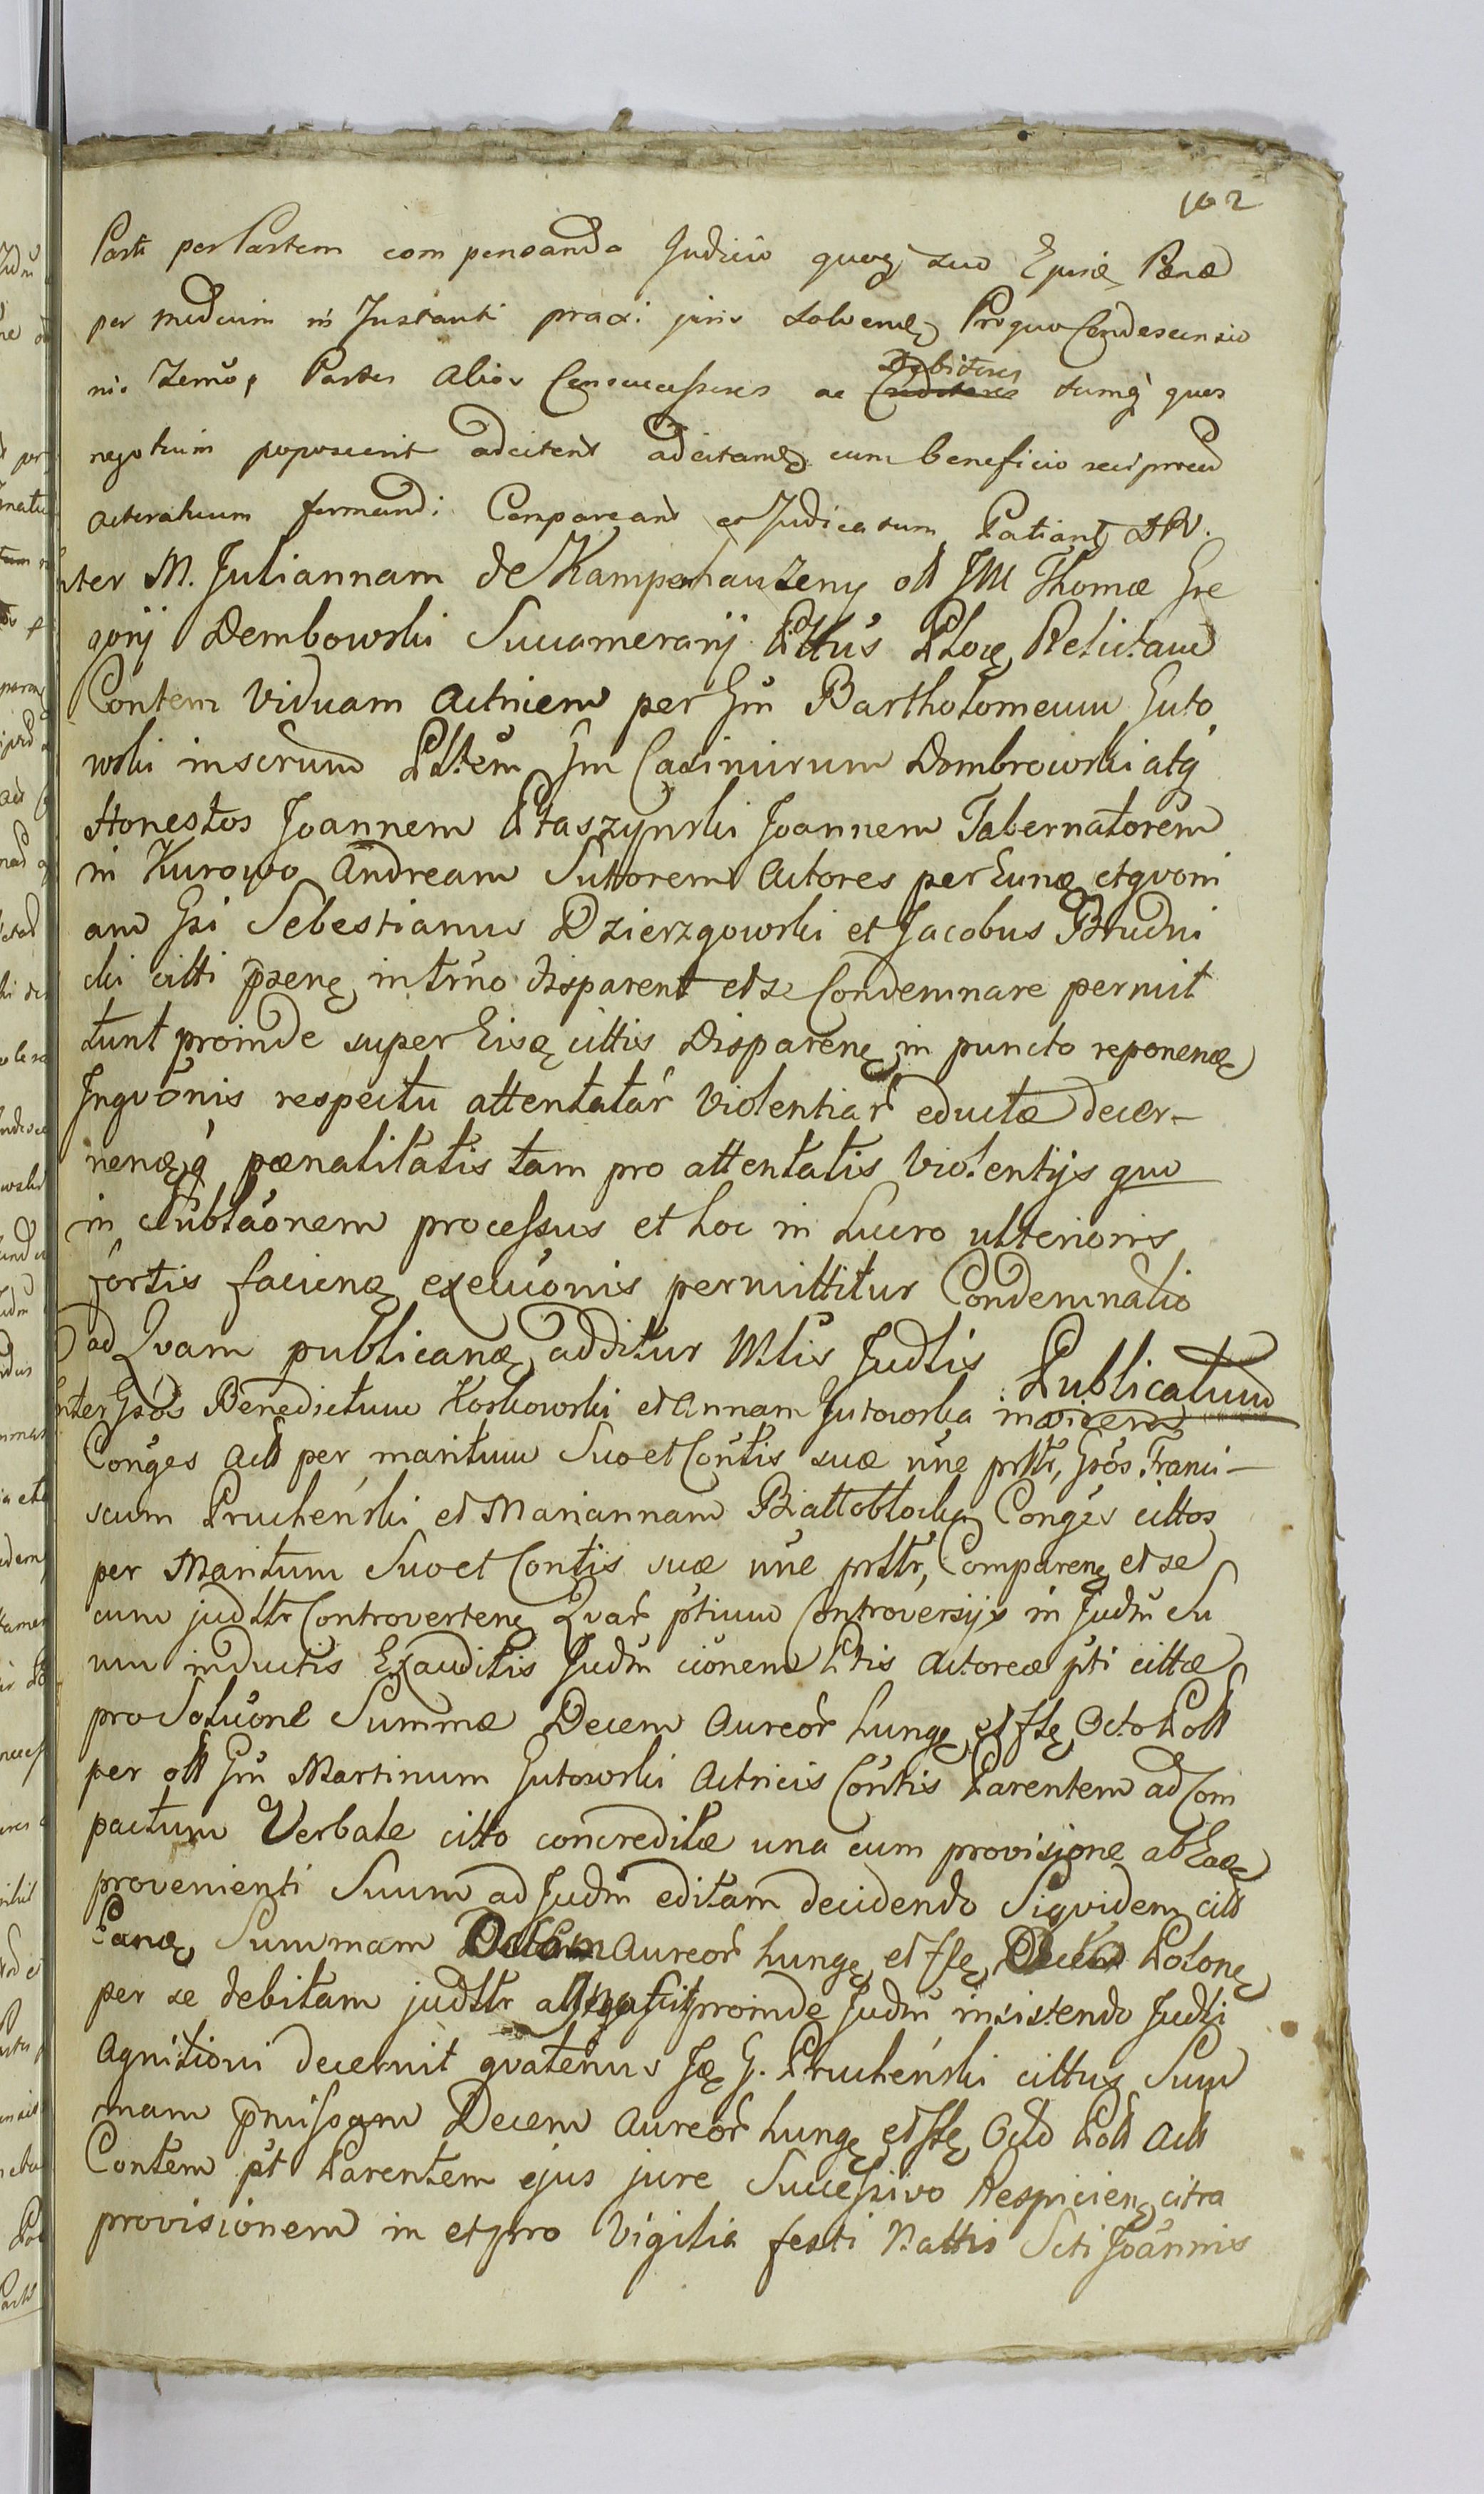 102
Parti per Partem compensanda Judicio quoq suo Ejusę Pæna
per medium in Instanti praxi juris solvenę Pro quo Condescensio
nis Termo, Partes Alios Consuccessores ac Creditores Debitores sumq quos
negotium poposcerit adcitent adcitamę cum beneficio reciprocæ
acteratuum formandi Compareant et Judicatum Patiantę DW.
Inter M. Juliannam de Kampenhauzeny oll JM Thomæ Gre
gorij Dembowski Succamerarij Pltŭs Plocę Relictam
Contem Viduam Actricem per Gm Bartholomeum Guto
wski inscrum Plltem Gm Casimirum Dombrowski atq
Honestos Joannem Ptaszynski Joannem Tabernatorem
in Kurowo Andream Suttorem Actores per Eunę et qvoni
am Gsi Sebestianus Dzierzgowski et Jacobus Brudni
cki citti pzenę in trno disparent et se Condemnare permit
tunt proinde super Eisę cittis Disparenę in puncto reponenæ
Inqvonis respectu attentatar Violentiar eductæ decer-
nenæ q pænalitatis tam pro attentatis Violentijs quo
in Sublaonem processus et hoc in Lucro ulterioris
fortis facienę execuonis permittitur Condemnatio
ad Qvam publicanę additur Mlis Judlis Publicatum
Inter Gsos Benedictum Koskowski et Annam Gutowska invicem
Conges Act per maritum Suo et Contis suæ nne prltr, Gsos Franci-
scum Pruchenski et Mariannam Białłobłocka Conges cittos
per Maritum Suo et Contis suæ nne prltr, Comparenę et se
cum judltr Controvertenę Qvar ptium Controversijs in Judm Su
um inductis Exauditis Judm cionem Ptis Actoreæ pti cittæ
pro Soluone Summæ Decem Aureor hungę et flę Octo Poll
per oll Gm Martinum Gutowski Actricis Contis Parentem ad Com
pactum Verbale citto concreditæ una cum provisione ab Eaę
provenienti Suum ad Judm editam decidendo Siqvidem citt
Eanę Summam Decem Aureor hungę et flę Octo Polonę
per se debitam judltr agnoscit proinde Judm insistendo Judli
Agnitioni decernit qvatenus Ję G. Pruchenski cittus Sum
mam pmissam Decem Aureor hungę et flę Octo Poll Act
Contem pt Parentem ejus jure Successivo Respicienę citra
provisionem in et pro Vigilia festi Nattis Scti Joannis